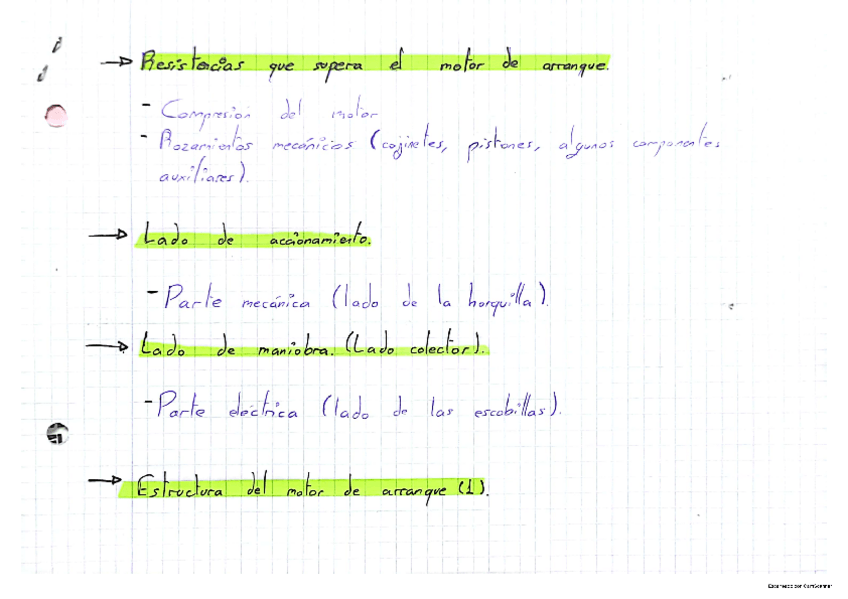 → Resistencias que supera el motor de arranque.
- Compresión del motor
- Rozamientos mecánicios (cojinetes, pistones, algunos componentes
auxiliares).
→ Lado de accionamiento.
- Parte mecánica (lado de la horquilla).
→ Lado de maniobra. (Lado colector).
- Parte eléctrica (lado de las escobillas).
→ Estructura del motor de arranque (1).
Escaneado con CamScanner